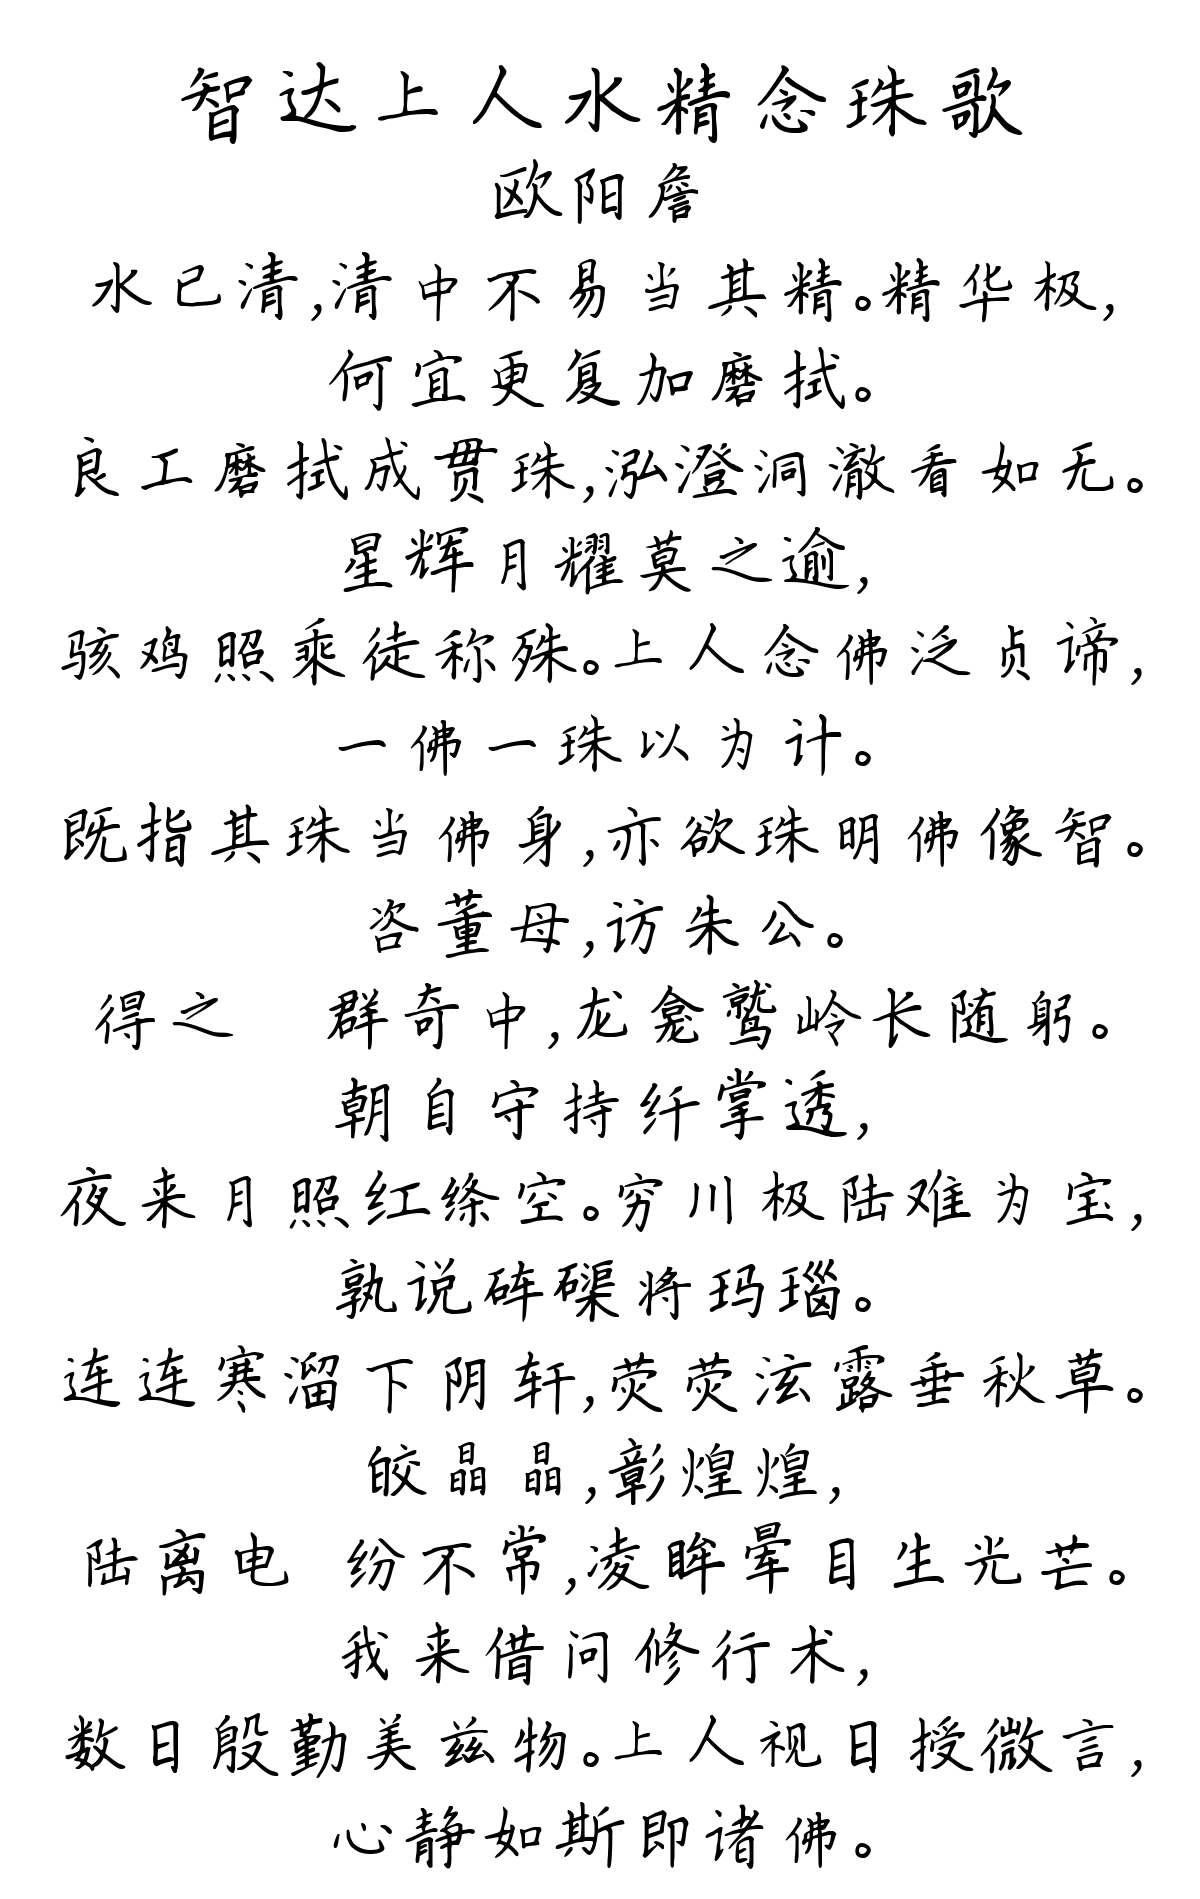 智达上人水精念珠歌
欧阳詹
水已清,清中不易当其精。精华极,
何宜更复加磨拭。
良工磨拭成贯珠,泓澄洞澈看如无。
星辉月耀莫之逾,
骇鸡照乘徒称殊。上人念佛泛贞谛,
一佛一珠以为计。
既指其珠当佛身,亦欲珠明佛像智。
咨董母,访朱公。
得之 群奇中,龙龛鹫岭长随躬。
朝自守持纤掌透,
夜来月照红绦空。穷川极陆难为宝,
孰说砗磲将玛瑙。
连连寒溜下阴轩,荧荧泫露垂秋草。
皎晶晶,彰煌煌,
陆离电 纷不常,凌眸晕目生光芒。
我来借问修行术,
数日殷勤美兹物。上人视日授微言,
心静如斯即诸佛。